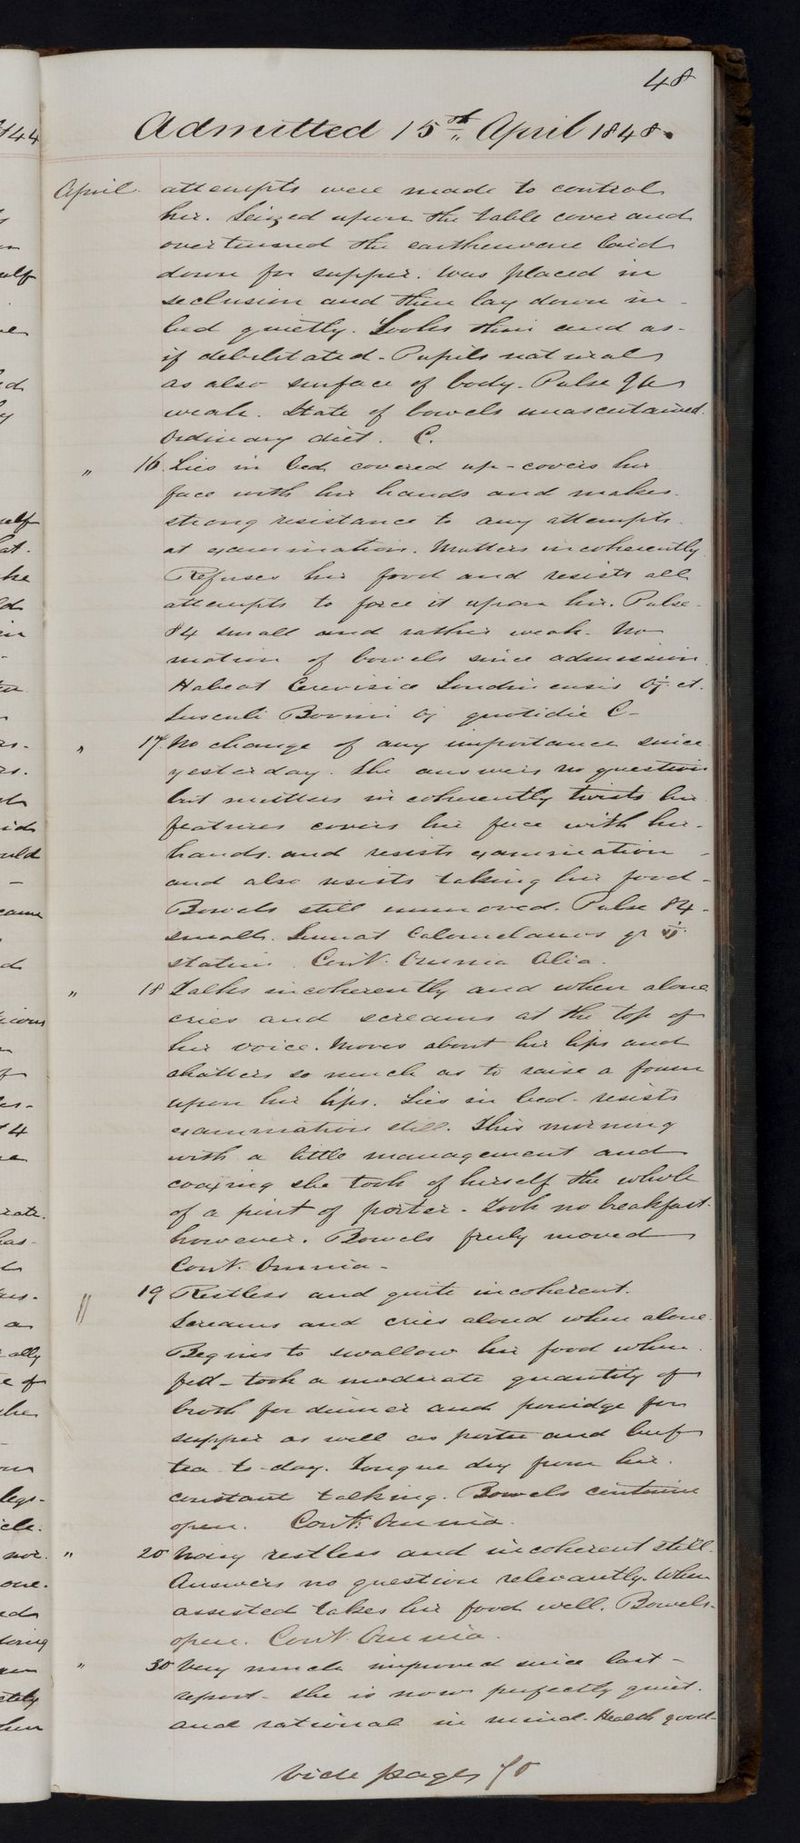 48
Admitted 15th April 1848.
April attempts were made to control
her. Seized upon the table cover and
overturned the earthenware laid
down for supper. Was placed in
seclusion and then lay down in
bed quietly. Looks thin and as
if debilitated - Pupils natural
as also surface of body. Pulse 96
weak. State of bowels unascertained.
Ordinary diet. C.
" 16 Lies in bed covered up - covers her
face with her hands and makes
strong resistance to any attempts
at examination. Mutters incoherently.
Refuses her food and resists all
attempts to force it upon her. Pulse
84 small and rather weak. No
motion of bowels since admission.
Habeat Cerevisiae Londinensis ℥j. et.
Jusculi Bovini ℥j quotidie C -
" 17 No change of any importance since
yesterday. She answers no question
but mutters incoherently twists her
features covers her face with her
hands. and resists examination -
and also resists taking her food -
Bowels still unmoved. Pulse 84 -
small. Sumat Calomelanos gr vj
statim. Cont. Omnia Alia.
" 18 Talks incoherently and when alone
cries and screams at the top of
her voice. Moves about her lips and
chatters so much as to raise a foam
upon her lips. Lies in bed - resists
examination still. This morning
with a little management and
coaxing she took of herself the whole
of a pint of porter - Took no breakfast
however. Bowels freely moved
Cont. Omnia -
" 19 Restless and quite incoherent.
Screams and cries aloud when alone.
Begins to swallow her food when
fed - took a moderate quantity of
broth for dinner and porridge for
supper as well as porter and beef
tea to-day. Tongue dry from her
constant talking. Bowels continue
open. Cont. Omnia.
" 20 Noisy restless and incoherent still.
Answers no question relevantly. When
assisted takes her food well. Bowels
open. Cont. Omnia.
" 30 Very much improved since last -
report - She is now perfectly quiet.
and rational in mind - Health good -
vide page 70